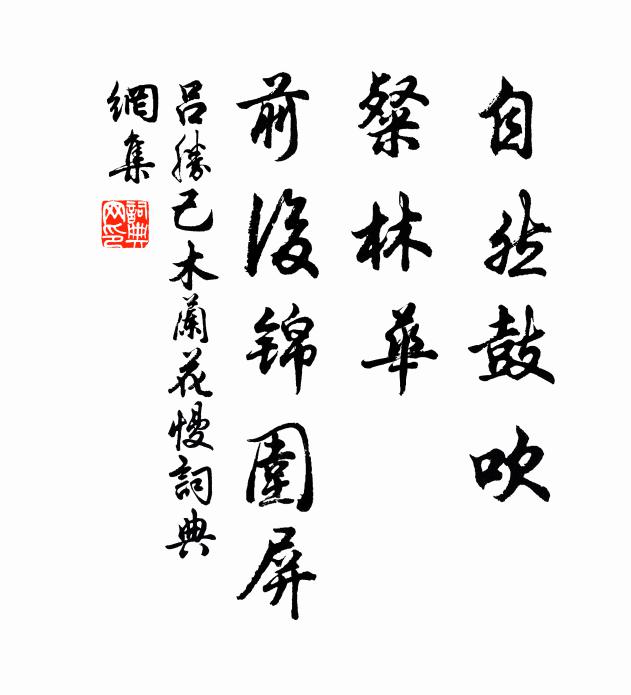 自然鼓吹
粲林華
前後錦圍屏
呂勝己木蘭花慢詞典
網集
詞典
网印